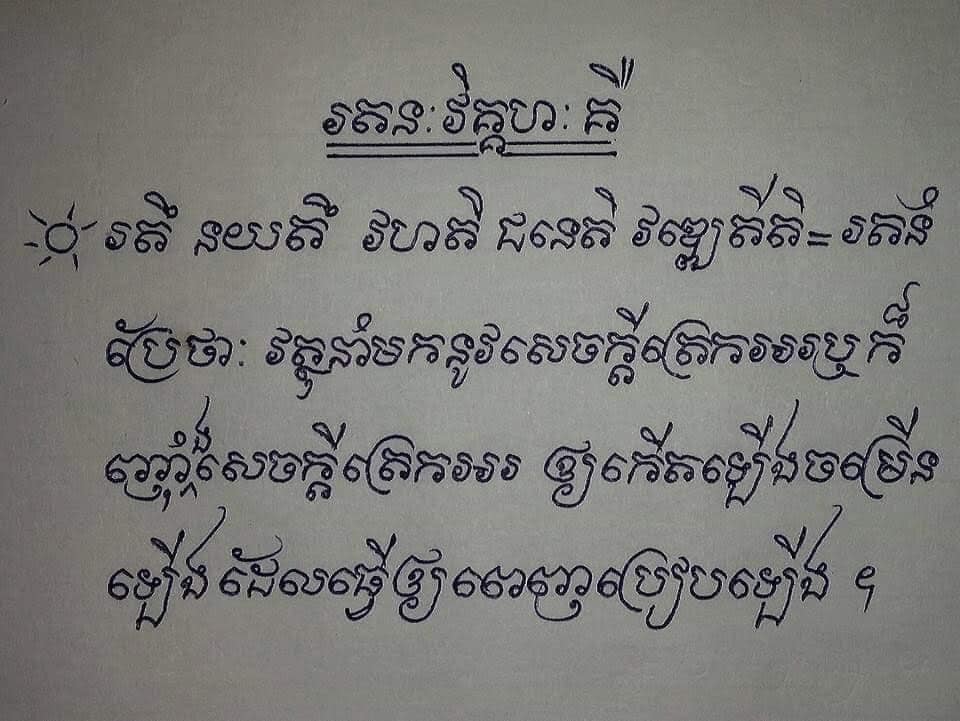 រតនៈវិគ្គហៈគឺ"
រតឹ នយតឹ វហតិ ជនេតិ វឌ្ឍេតីតិ = រតនំ
ប្រែថាៈ វត្ថុនាំមកនូវសេចក្ដីត្រេកអរឬក៏
ញ៉ាំងសេចក្ដីត្រេកអរ ឲ្យកើតឡើងចម្រើន
ឡើងដែលធ្វើឲ្យពេញប្រៀបឡើង ។